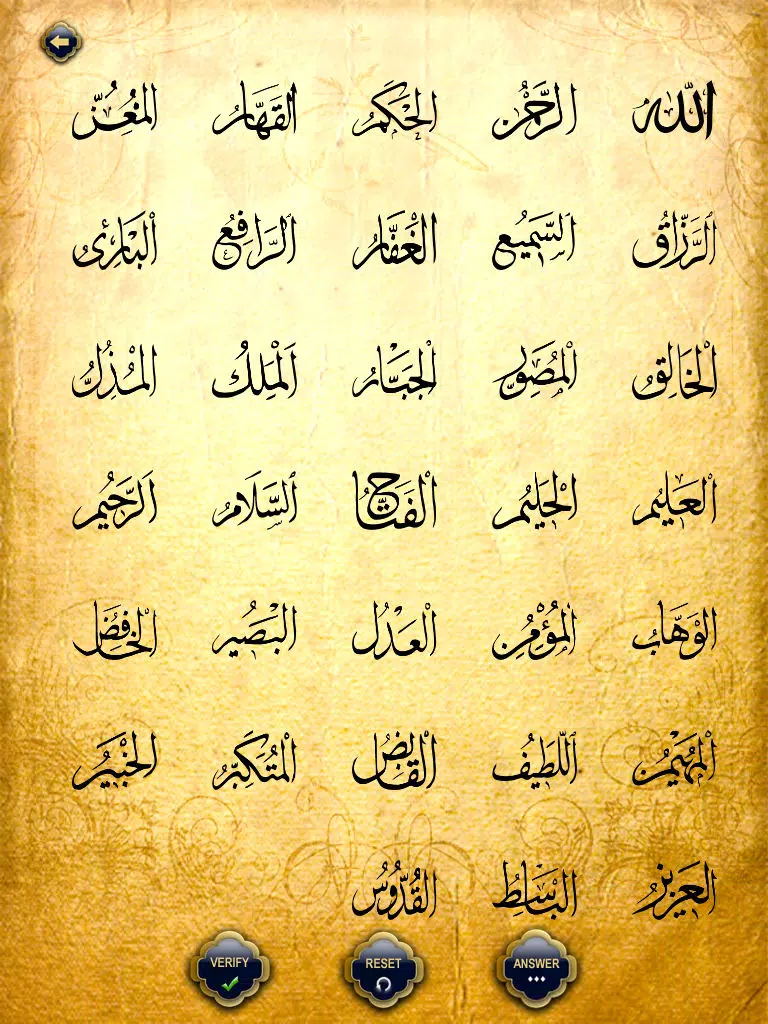 الله الرحمن الحكم القهار المعز
الرزاق السميع الغفار الرافع البارئ
الخالق المصور الجبار الملك المذل
العليم الحليم الفتاح السلام الرحيم
الوهاب المؤمن العدل البصير الخافض
المهيمن اللطيف القابض المتكبر الخبير
العزيز الباسط القدوس
VERIFY RESET ANSWER